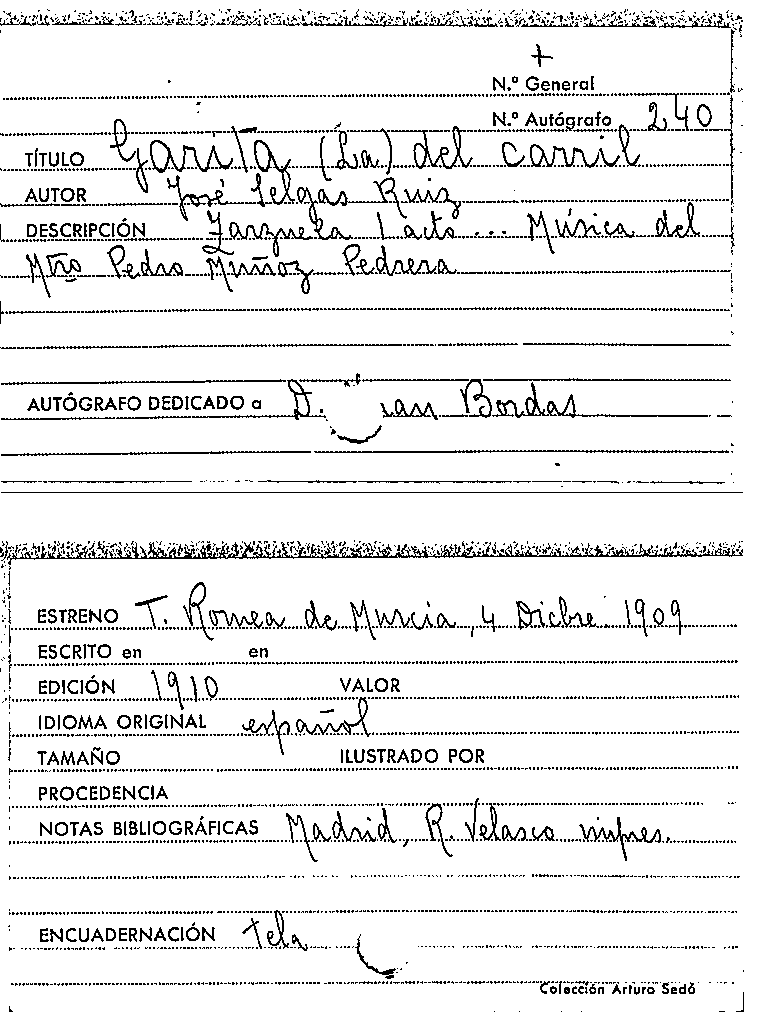 +
N.º General
N.º Autógrafo 240
TÍTULO Garita (La) del carril
AUTOR José Selgas Ruiz
DESCRIPCIÓN Zarzuela 1 acto ... Música del
Mtro Pedro Muñoz Pedrera
AUTÓGRAFO DEDICADO a D. Juan Bordas
ESTRENO T. Romea de Murcia, 4 Dicbre 1909
ESCRITO en en
EDICIÓN 1910 VALOR
IDIOMA ORIGINAL español
TAMAÑO ILUSTRADO POR
PROCEDENCIA
NOTAS BIBLIOGRÁFICAS Madrid, R. Velasco impres.
ENCUADERNACIÓN tela
Colección Arturo Sedó